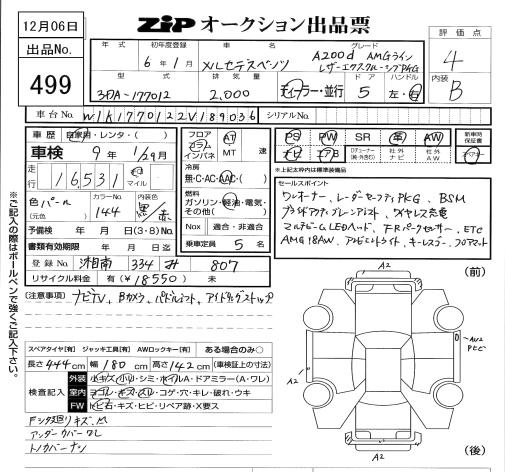 12月06日
ZIP オークション出品票
評価点
出品No.
499
年式 初年度登録 車名 グレード
6年1月 メルセデスベンツ A200d AMGライン
レザーエクスクルーシブPKG
4
型式 排気量 ドア ハンドル
3DA-177012 2,000 ディーゼル・並行 5 左・右
内装
B
車台No. W1K1770122V189036 シリアルNo.
車歴 自家用・レンタ・( )
車検 9年 1/29月
走行 16,531 km マイル
色 パール カラーNo. 144 内装色 黒/赤
(元色)
予備検 年 月 日(3・8)No.
書類有効期限 年 月 日
登録No. 湘南 334 み 807
リサイクル料金 有(¥18550)
フロア AT
コラム
インパネ MT 速
冷房
無・C・AC・AAC・( )
燃料
ガソリン・軽油・電気・
その他( )
Nox 適合・非適合
乗車定員 5 名
PS PW SR 革 AW
ナビ エアB
社外ナビ 社外AW
新車時保証書
※上記太枠内は標準装備品
セールスポイント
ワンオーナー、レーダーセーフティPKG、BSM
マルチビームLEDヘッド、F・Rパークセンサー、ETC
AMG18AW、アンビエントライト、キーレスゴー、フロアマット
(注意事項) ナビTV、Bカメラ、パドルシフト、アイドリングストップ
※ご記入の際はボールペンで強くご記入下さい。
スペアタイヤ[有] ジャッキ工具[有] AWロックキー[有] ある場合のみ○
長さ 444cm 幅 180cm 高さ 142cm (車検証上の寸法)
検査記入
外装 小キズ・小凹・シミ・ホイルA・ドアミラー(A・ワレ)
室内 ヨゴレ・キズ・スレ・コゲ・穴・キレ・破れ・ウキ
FW トビ石・キズ・ヒビ・リペア跡・X要ス
アンダーカバーワレ
トノカバーナシ
A2
(前)
A2
AW2
A2
(後)